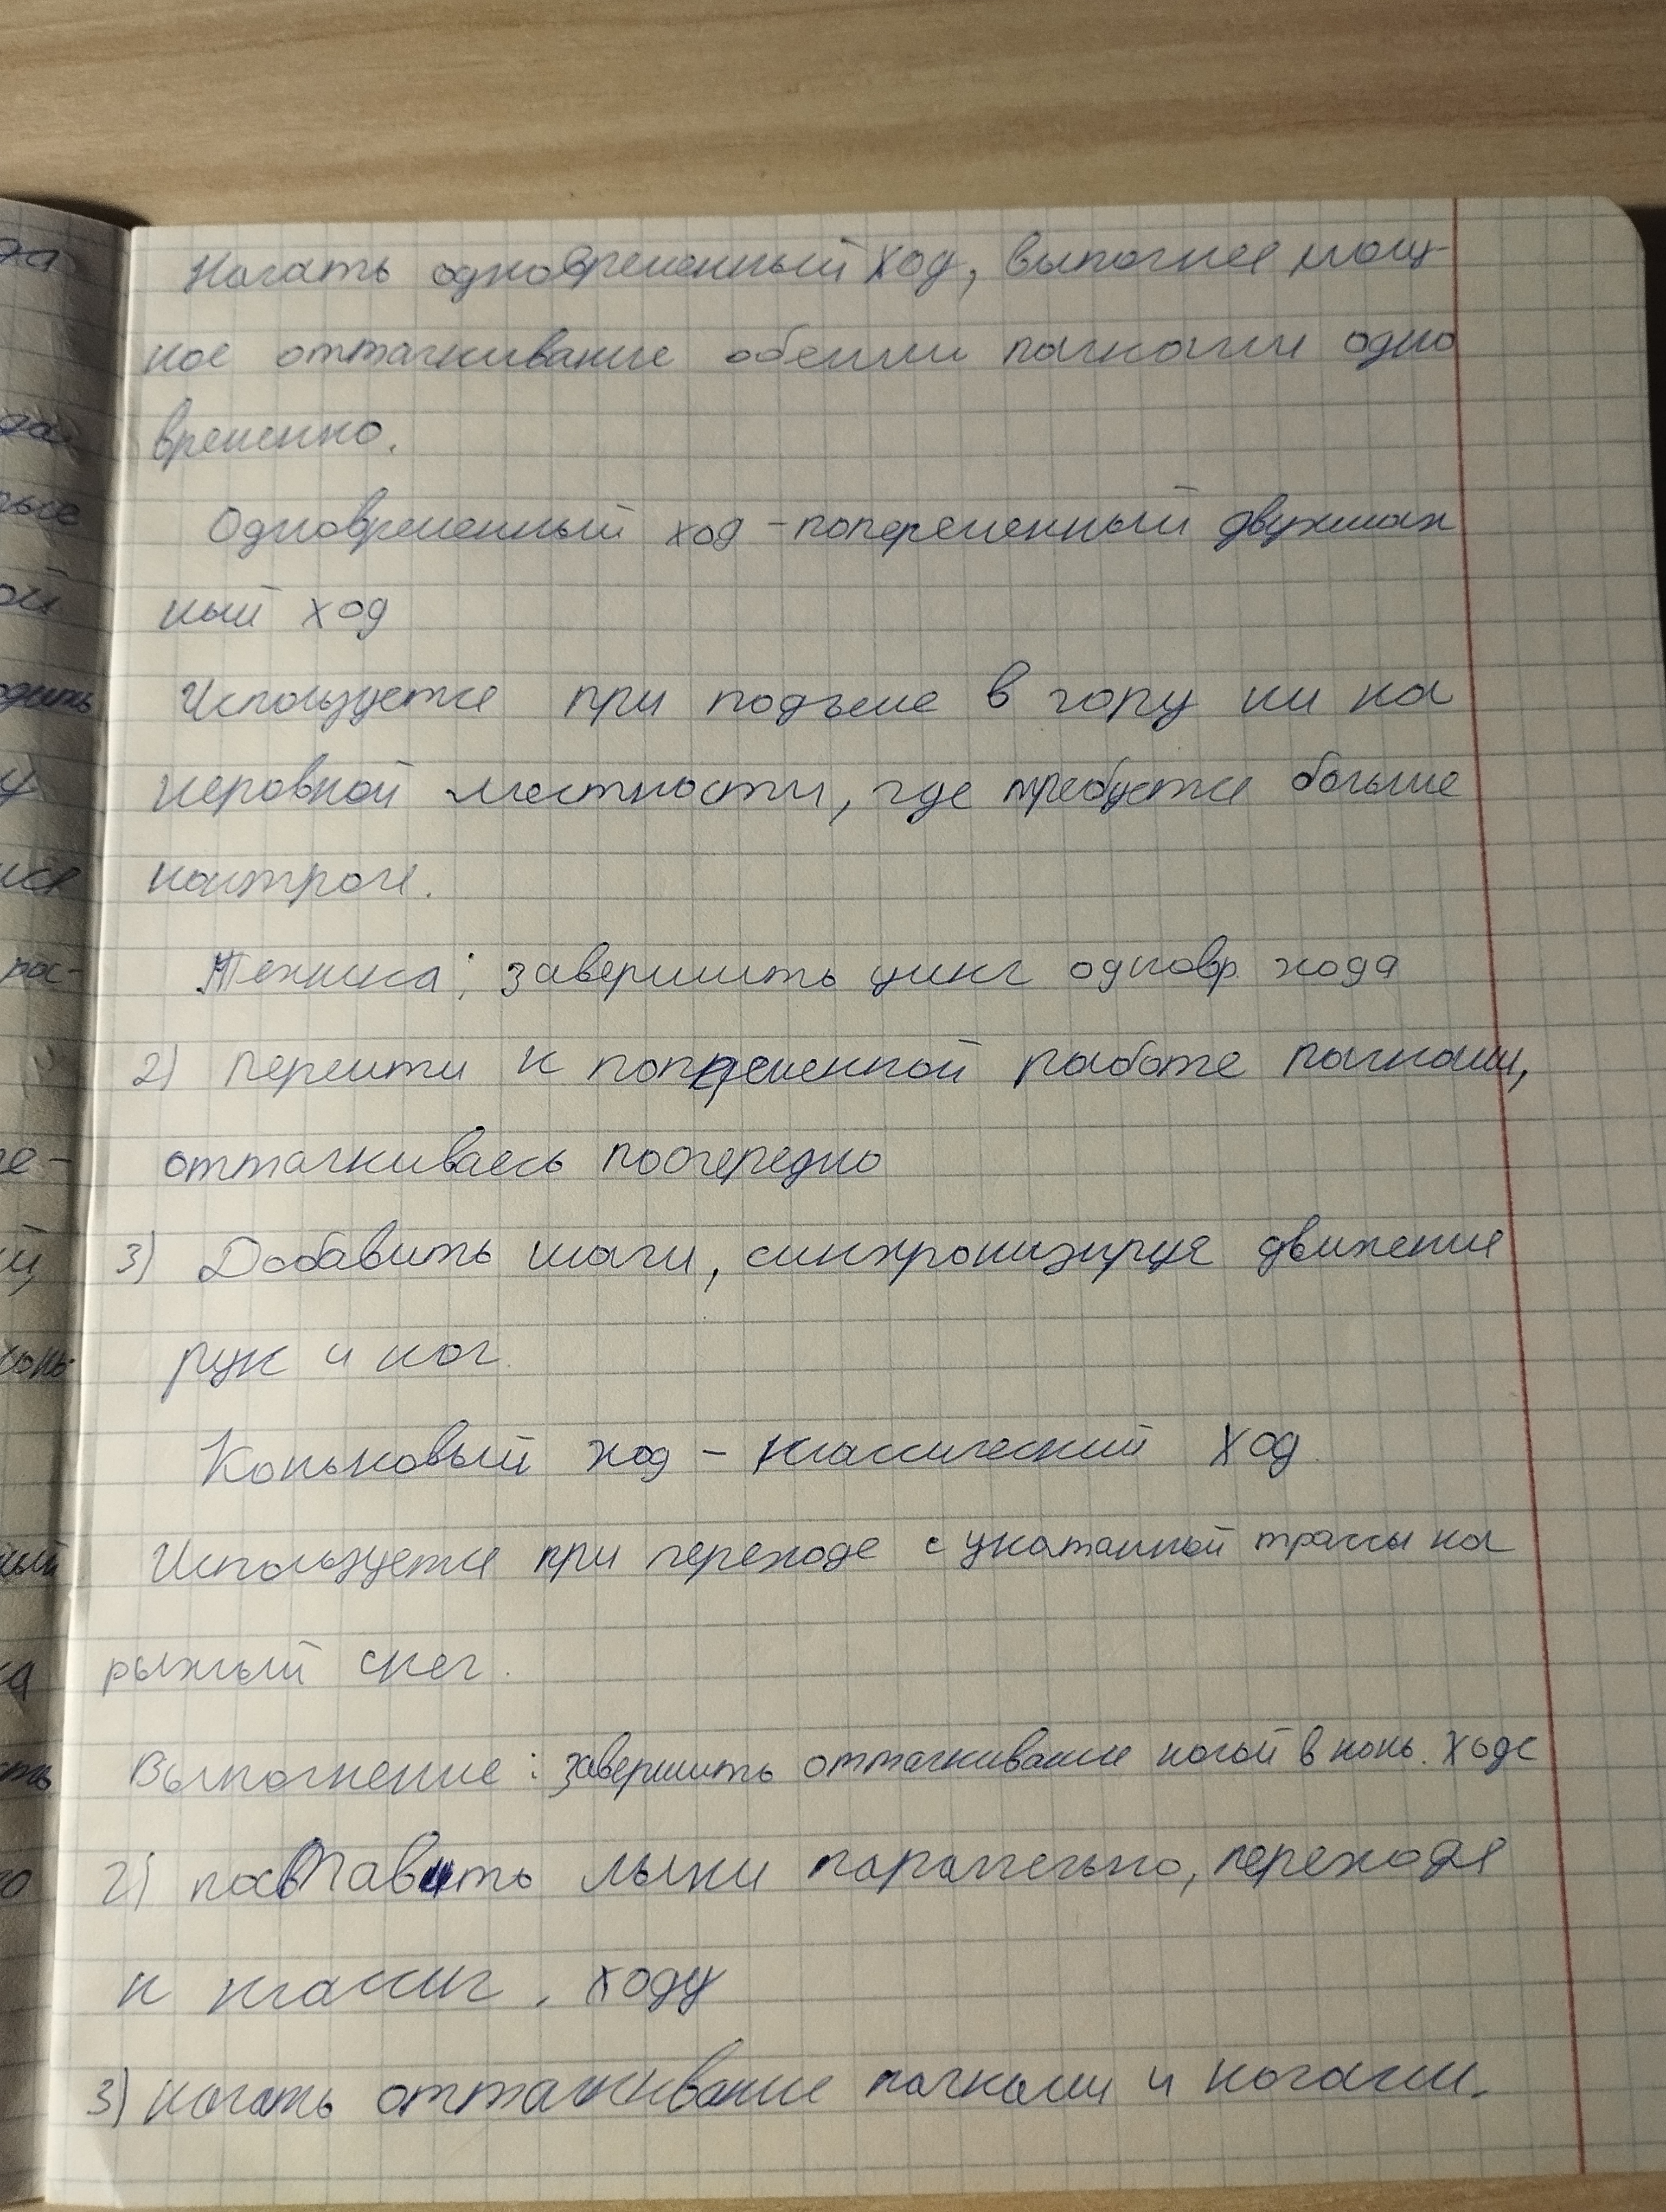 Начать одновременный ход, выполняя мощ-
ное отталкивание обеими палками одно
временно.
Одновременный ход - попеременный двухшаж
ный ход
Используется при подъеме в гору или на
неровной местности, где требуется больше
контроля.
Техника: завершить цикл одновр. хода
2) перейти к попеременной работе палками,
отталкиваясь поочередно
3) Добавить шаги, синхронизируя движения
рук и ног.
Коньковый ход - классический ход.
Используется при переходе с укатанной трассы на
рыхлый снег.
Выполнение: завершить отталкивание ногой в конь. ходе
2) поставить лыжи параллельно, переходя
к классич. ходу
3) начать отталкивание палками и ногами.